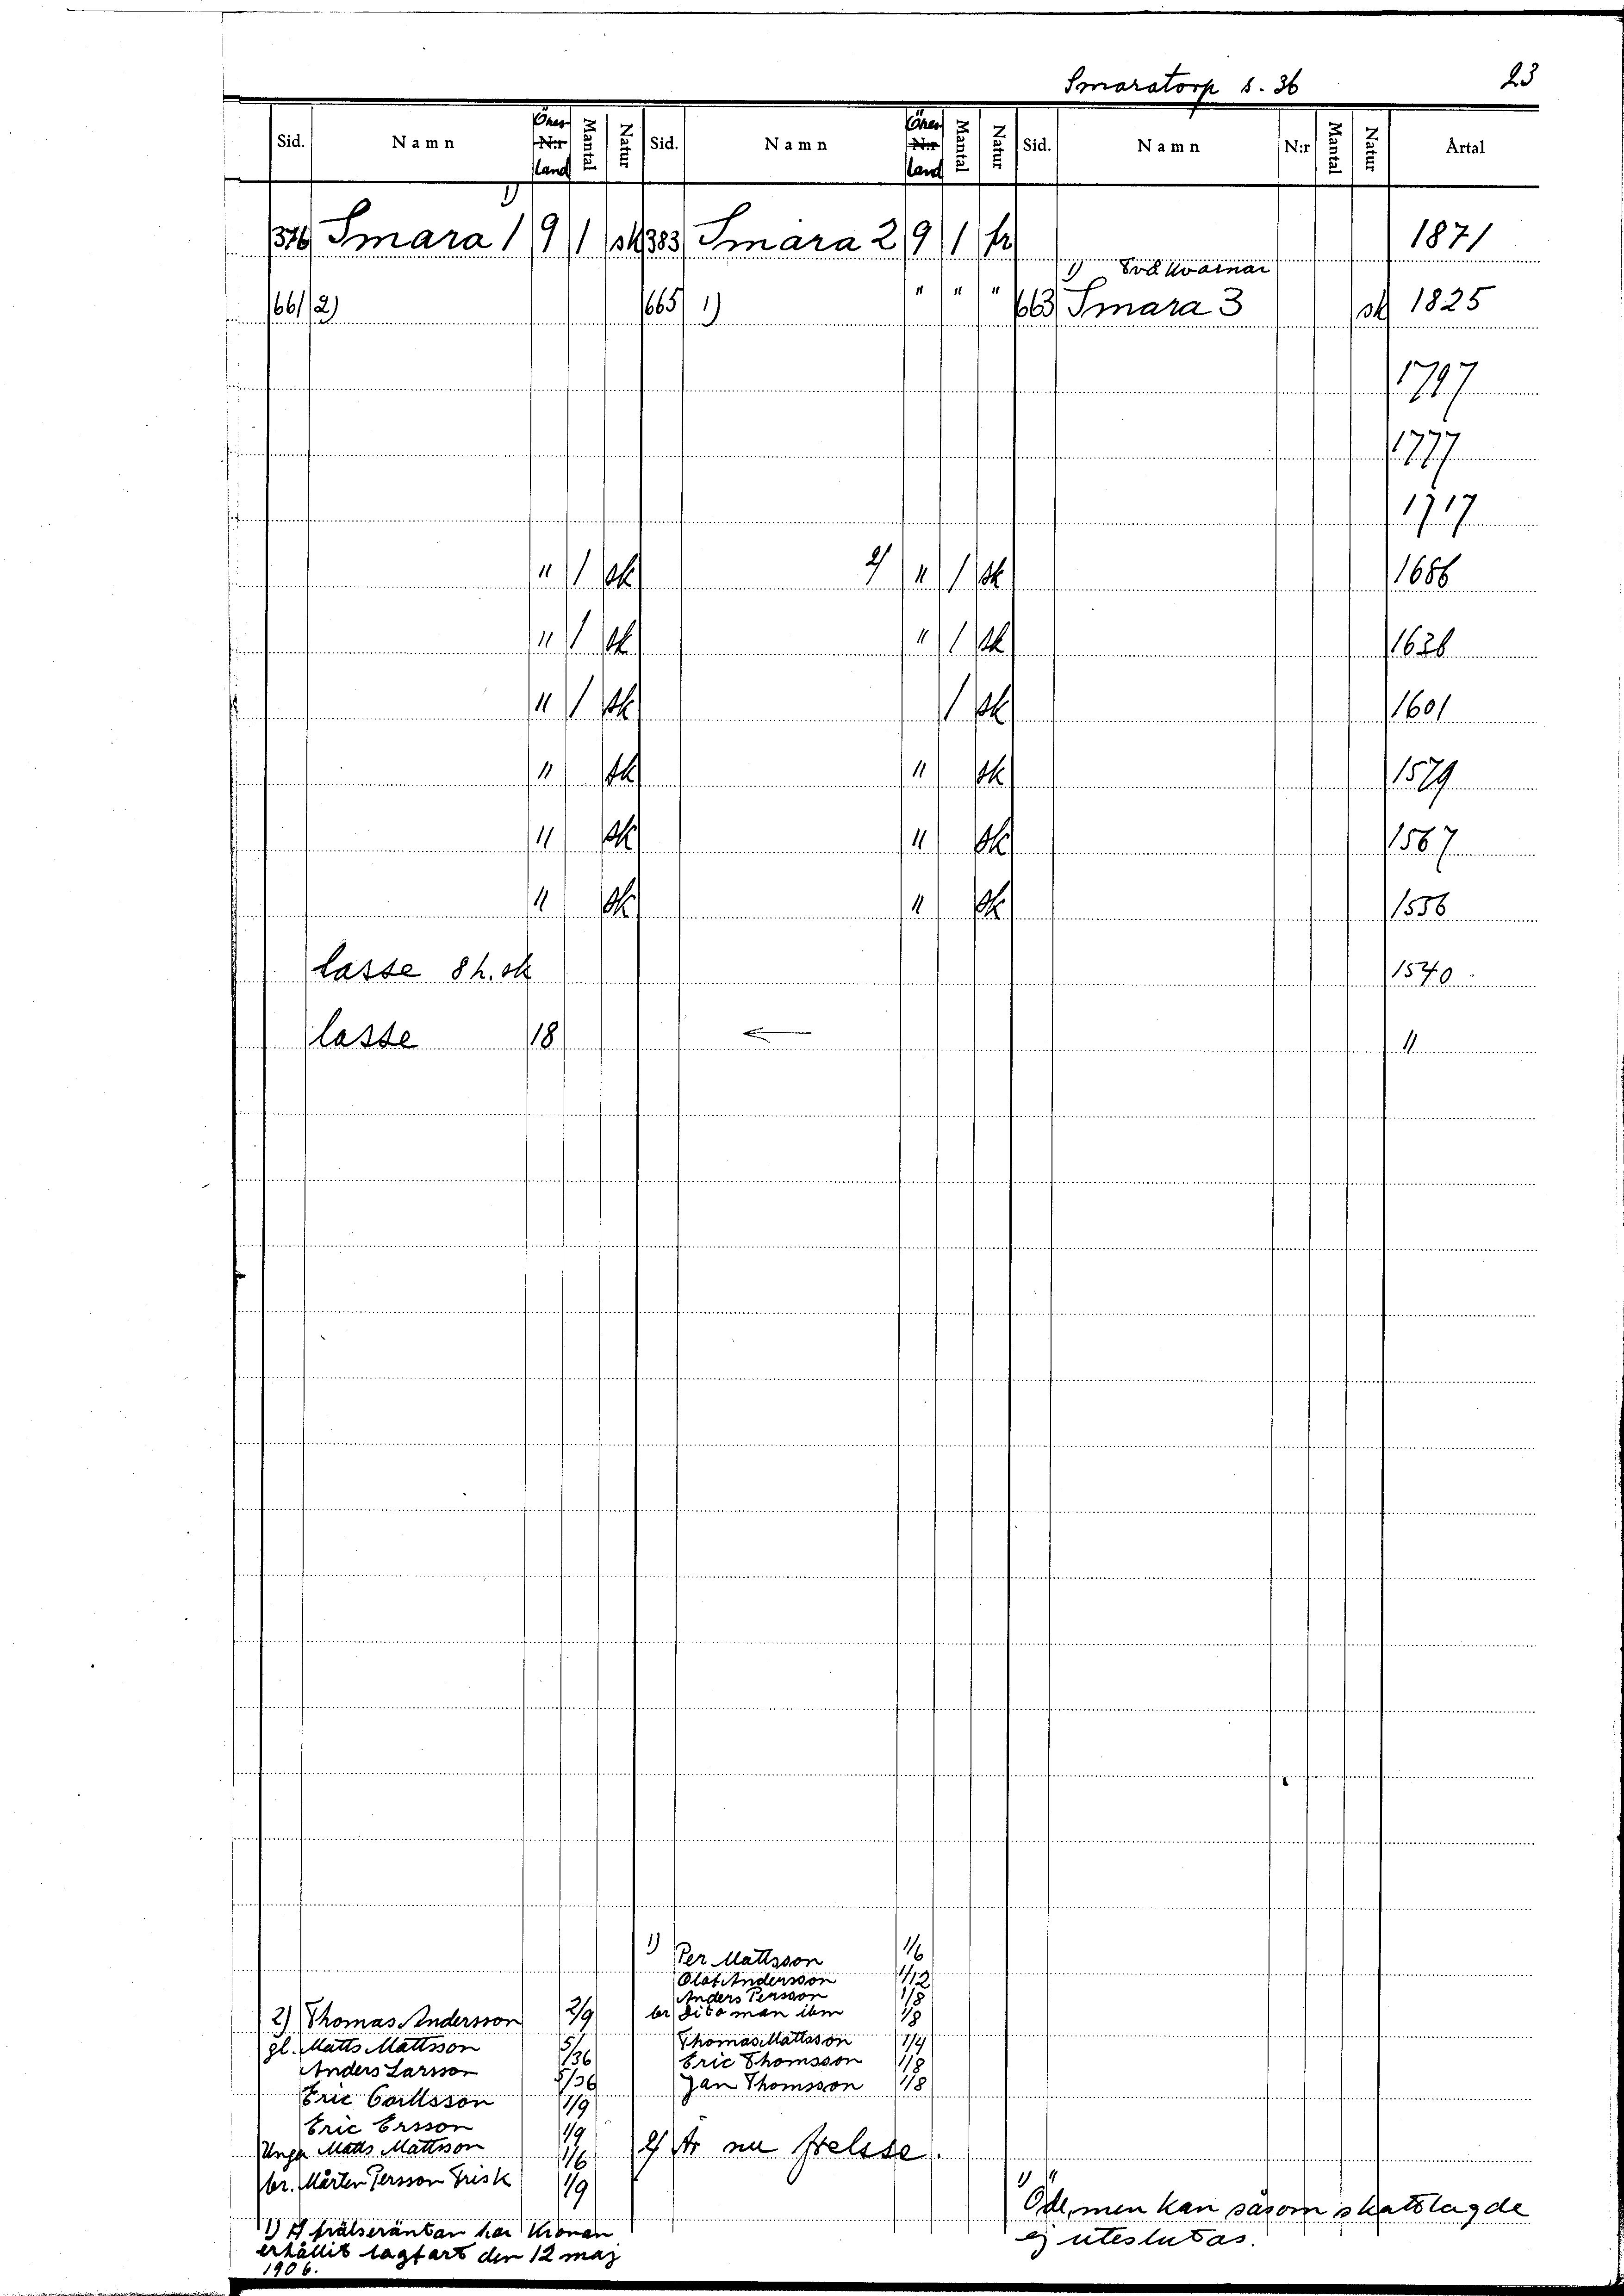 Smaratorp s. 36 23
Sid. Namn Öres N:r land Mantal Natur Sid. Namn Öres N:r land Mantal Natur Sid. Namn N:r Mantal Natur Årtal
1)
376 Smara 1 9 1 sk 383 Smara 2 9 1 fr 1871
1) Två kvarnar
661 2) 665 1) " " " 663 Smara 3 sk 1825
1797
1777
1717
" 1 sk 2) " 1 sk 1686
" 1 sk " 1 sk 1628
" 1 sk 1 sk 1601
" sk " sk 1579
" sk " sk 1567
" sk " sk 1556
lasse 8 h. sk 1540
lasse 18 ← "
1) Per Mattsson 1/6
Olof Andersson 1/12
Anders Persson 1/8
br dito man ibm 1/8
Thomas Mattsson 1/4
Eric Thomsson 1/8
Jan Thomsson 1/8
2) Är nu frelsse.
2) Thomas Andersson 2/9
gl. Matts Mattsson 5/36
Anders Larsson 5/36
Eric Carlsson 1/9
Eric Ersson 1/9
Unga Matts Mattsson 1/6
br. Mårten Persson Frisk 1/9
1) Af frälseräntan har Kronan
erhållit lagfart den 12 maj
1906.
1) Öde, men kan såsom skattlagde
ej uteslutas.